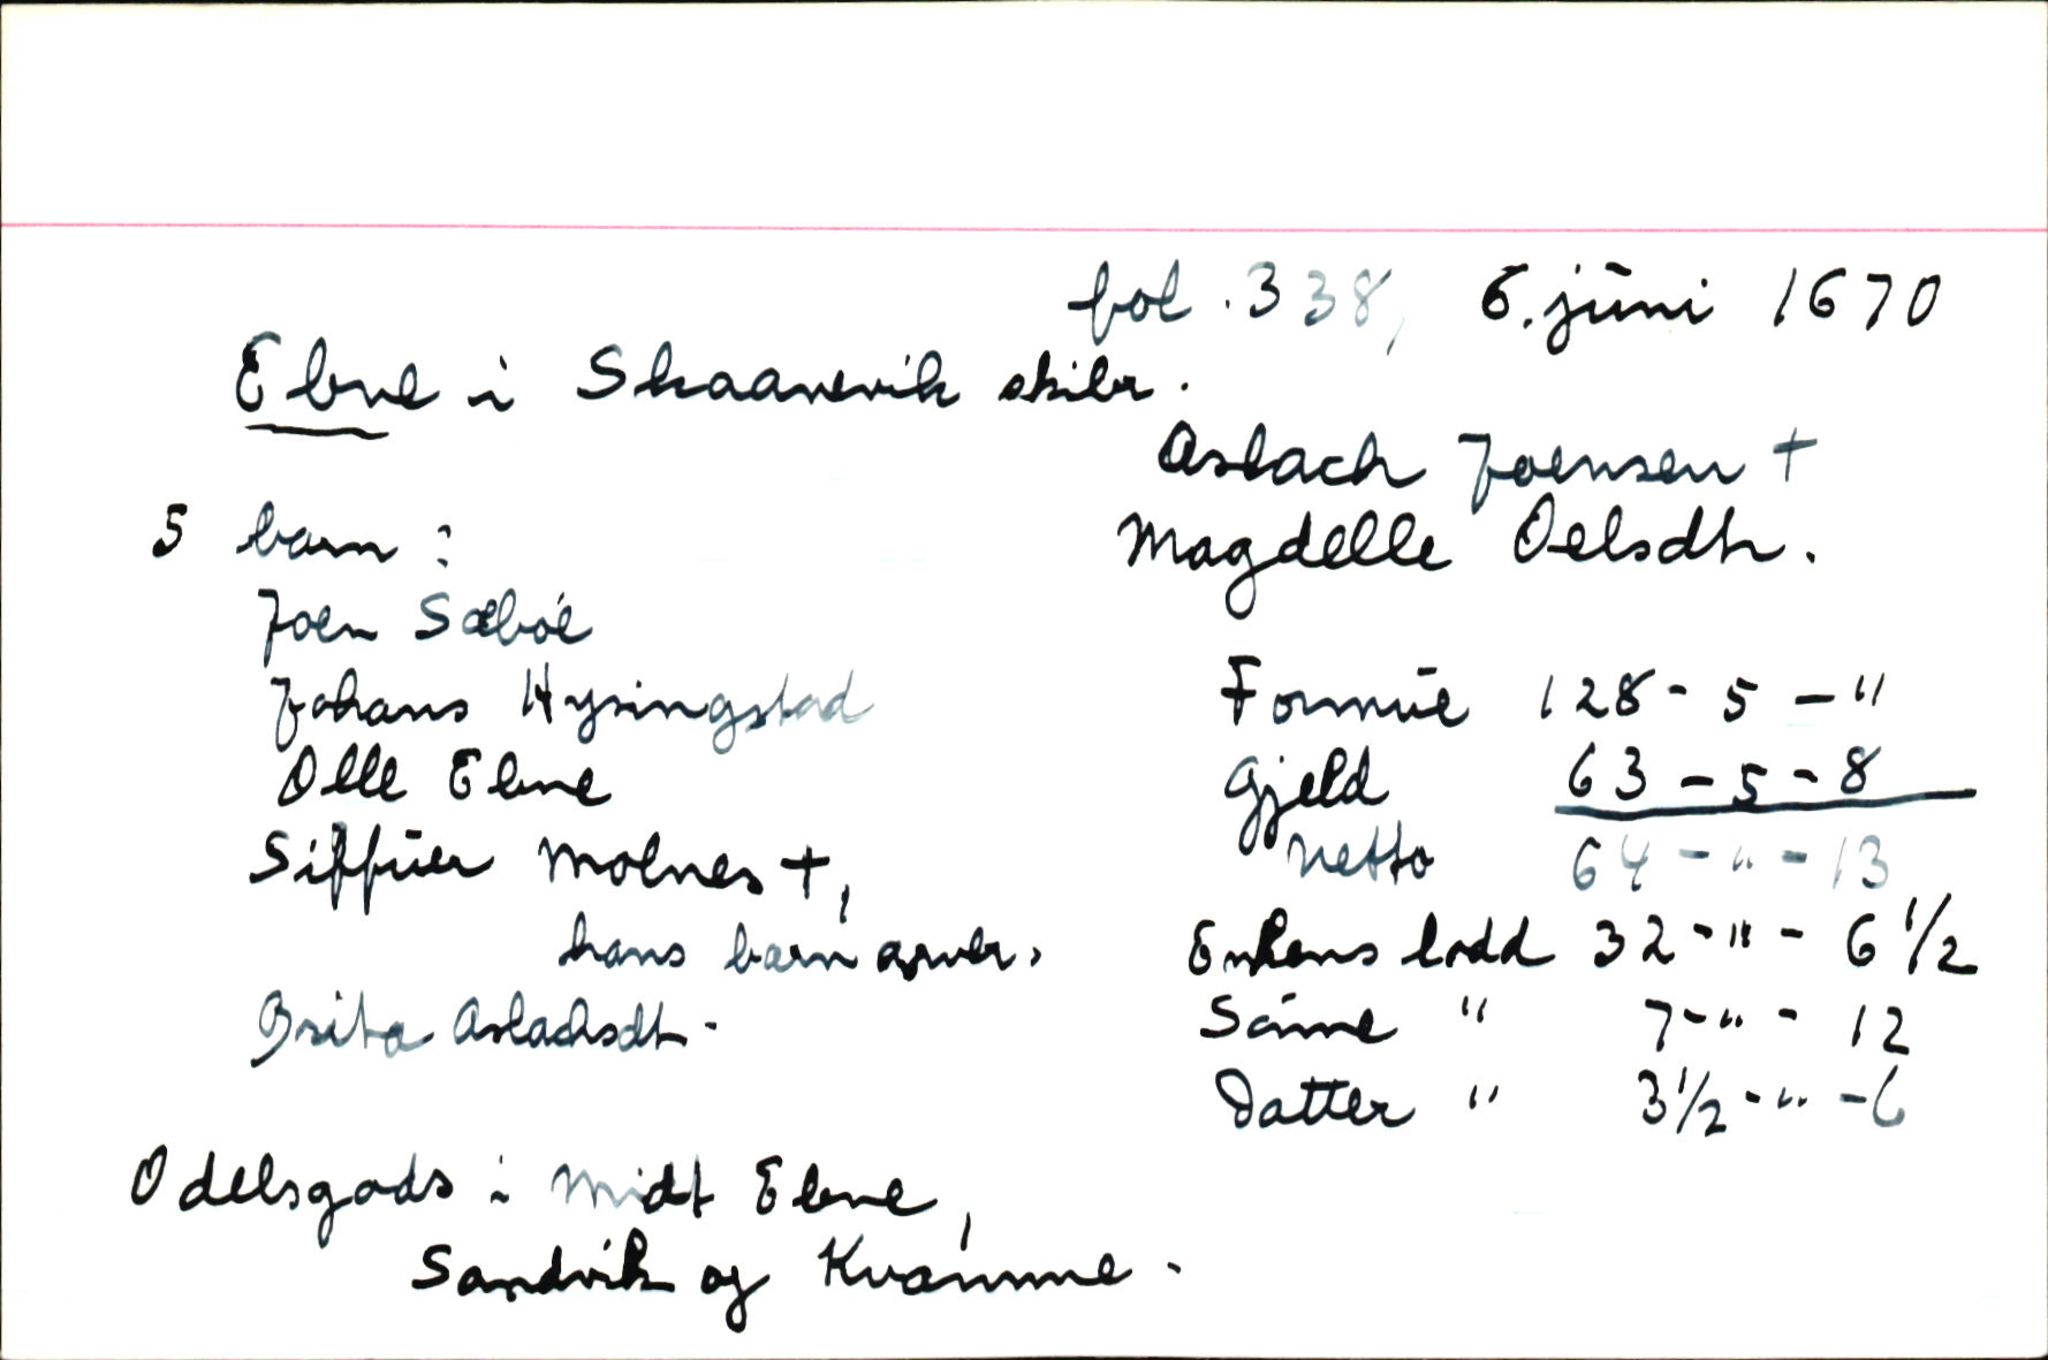 fol. 338, 6. juni 1670
Ebne i Skaanevik skibr.
Aslach Joensen +
Magdelle Oelsdtr.
5 barn :
Joen Sæbøe
Johans Hysingstad
Olle Ebne
Siffuer Molnes +,
hans barn arver.
Brita Aslachsdtr.
Formue 128 - 5 - "
Gjeld 63 - 5 - 8
Netto 64 - " - 13
Enkens lodd 32 - " - 6 1/2
Sönne " 7 - " - 12
Datter " 3 1/2 - " - 6
Odelsgods i Midt Ebne,
Sandvik og Kvamme.